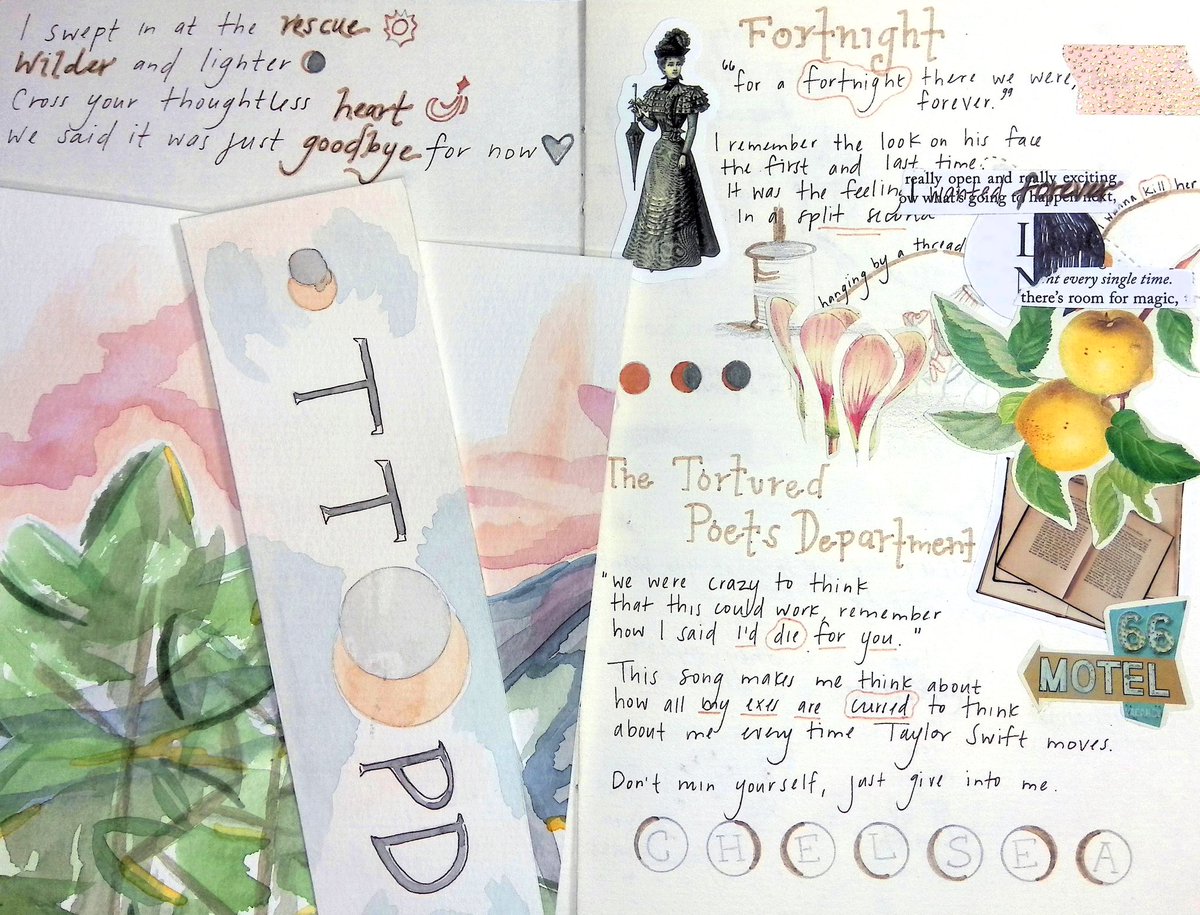 I swept in at the rescue
Wilder and lighter
Cross your thoughtless heart
We said it was just goodbye for now
TTPD
Fortnight
"for a fortnight there we were,
forever."
I remember the look on his face
the first and last time.
It was the feeling I wanted forever
In a split second
really open and really exciting
ow what's going to happen next,
I wanna kill her
hanging by a thread
nt every single time.
there's room for magic,
The Tortured
Poets Department
"We were crazy to think
that this could work, remember
how I said I'd die for you."
This song makes me think about
how all my exes are cursed to think
about me every time Taylor Swift moves.
Don't min yourself, just give into me.
66
MOTEL
CHELSEA